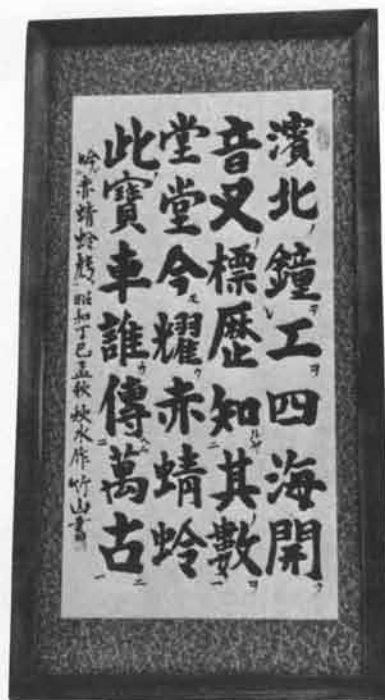 濱北鐘工四海開
音叉標歴知其數
堂堂今耀赤蜻蛉
此寶車誰傳萬古
吟赤蜻蛉 昭和丁巳孟秋 秋水作 竹山書